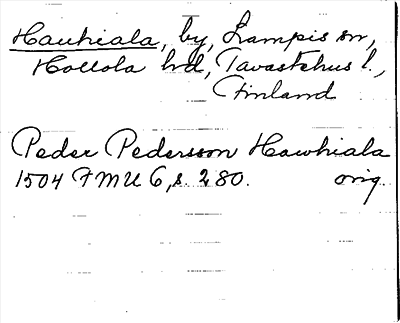 Hauhiala, by, Lampis sn,
Hollola hd, Tavastehus l.,
Finland
Peder Pedersson Hawhiala
1504 FMU 6, s. 280. orig.